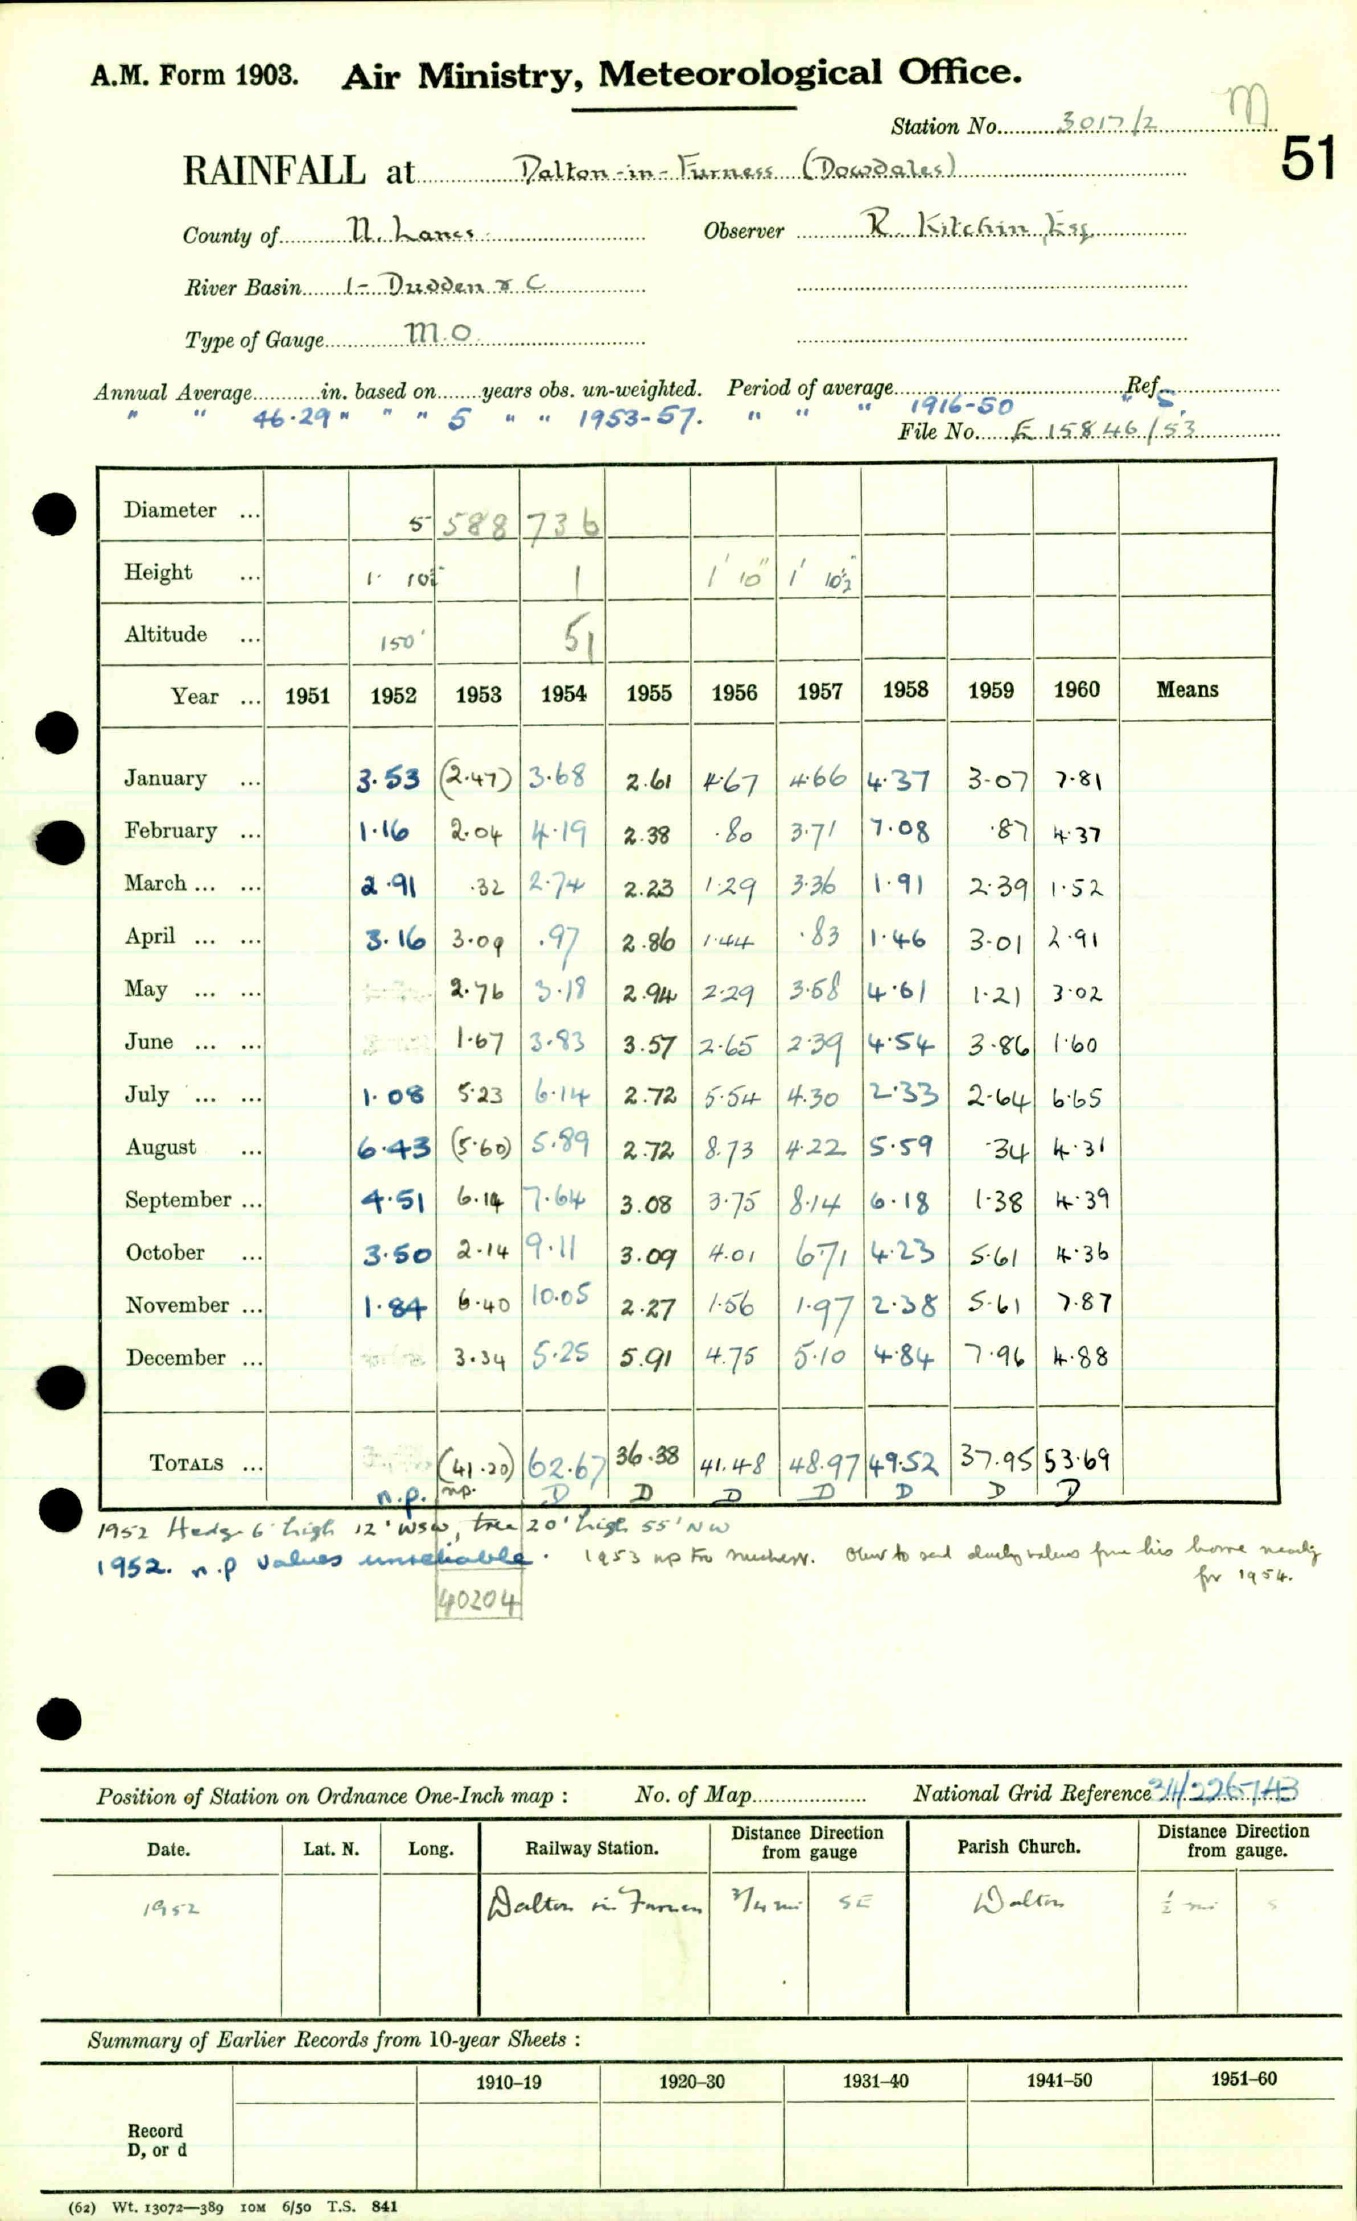 A.M. Form 1903. Air Ministry, Meteorological Office.
M
Station No. 3017/2
51
RAINFALL at Dalton-in-Furness (Dowdales)
County of N. Lancs. Observer R. Kitchin, Esq
River Basin 1- Dudden & C
Type of Gauge M.O.
Annual Average in. based on years obs. un-weighted. Period of average Ref.
" " 46.29 " " " 5 " " 1953-57. " " " 1916-50 " S.
File No. E 15846/53
Diameter ... 5 588 736
Height ... 1' 10½" 1 1' 10" 1' 10½"
Altitude ... 150' 51
Year ... 1951 1952 1953 1954 1955 1956 1957 1958 1959 1960 Means
January ... 3.53 (2.47) 3.68 2.61 4.67 4.66 4.37 3.07 7.81
February ... 1.16 2.04 4.19 2.38 .80 3.71 7.08 .87 4.37
March ... ... 2.91 .32 2.74 2.23 1.29 3.36 1.91 2.39 1.52
April ... ... 3.16 3.09 .97 2.86 1.44 .83 1.46 3.01 2.91
May ... ... 2.76 3.18 2.94 2.29 3.58 4.61 1.21 3.02
June ... ... 1.67 3.83 3.57 2.65 2.39 4.54 3.86 1.60
July ... ... 1.08 5.23 6.14 2.72 5.54 4.30 2.33 2.64 6.65
August ... 6.43 (5.60) 5.89 2.72 8.73 4.22 5.59 .34 4.31
September ... 4.51 6.14 7.64 3.08 3.75 8.14 6.18 1.38 4.39
October ... 3.50 2.14 9.11 3.09 4.01 6.71 4.23 5.61 4.36
November ... 1.84 6.40 10.05 2.27 1.56 1.97 2.38 5.61 7.87
December ... 3.34 5.25 5.91 4.75 5.10 4.84 7.96 4.88
TOTALS ... (41.20) 62.67 36.38 41.48 48.97 49.52 37.95 53.69
n.p. np. D D D D D D D
1952 Hedge 6' high 12' WSW, tree 20' high 55' NW
1952. n.p values unreliable. 1953 np daily values from his home nearby
for 1954.
40204
Position of Station on Ordnance One-Inch map : No. of Map National Grid Reference 34/226743
Date. Lat. N. Long. Railway Station. Distance Direction from gauge Parish Church. Distance Direction from gauge.
1952 Dalton in Furness 3/4 mi SE Dalton ½ mi S
Summary of Earlier Records from 10-year Sheets :
1910–19 1920–30 1931–40 1941–50 1951–60
Record
D, or d
(62) Wt. 13072—389 10M 6/50 T.S. 841